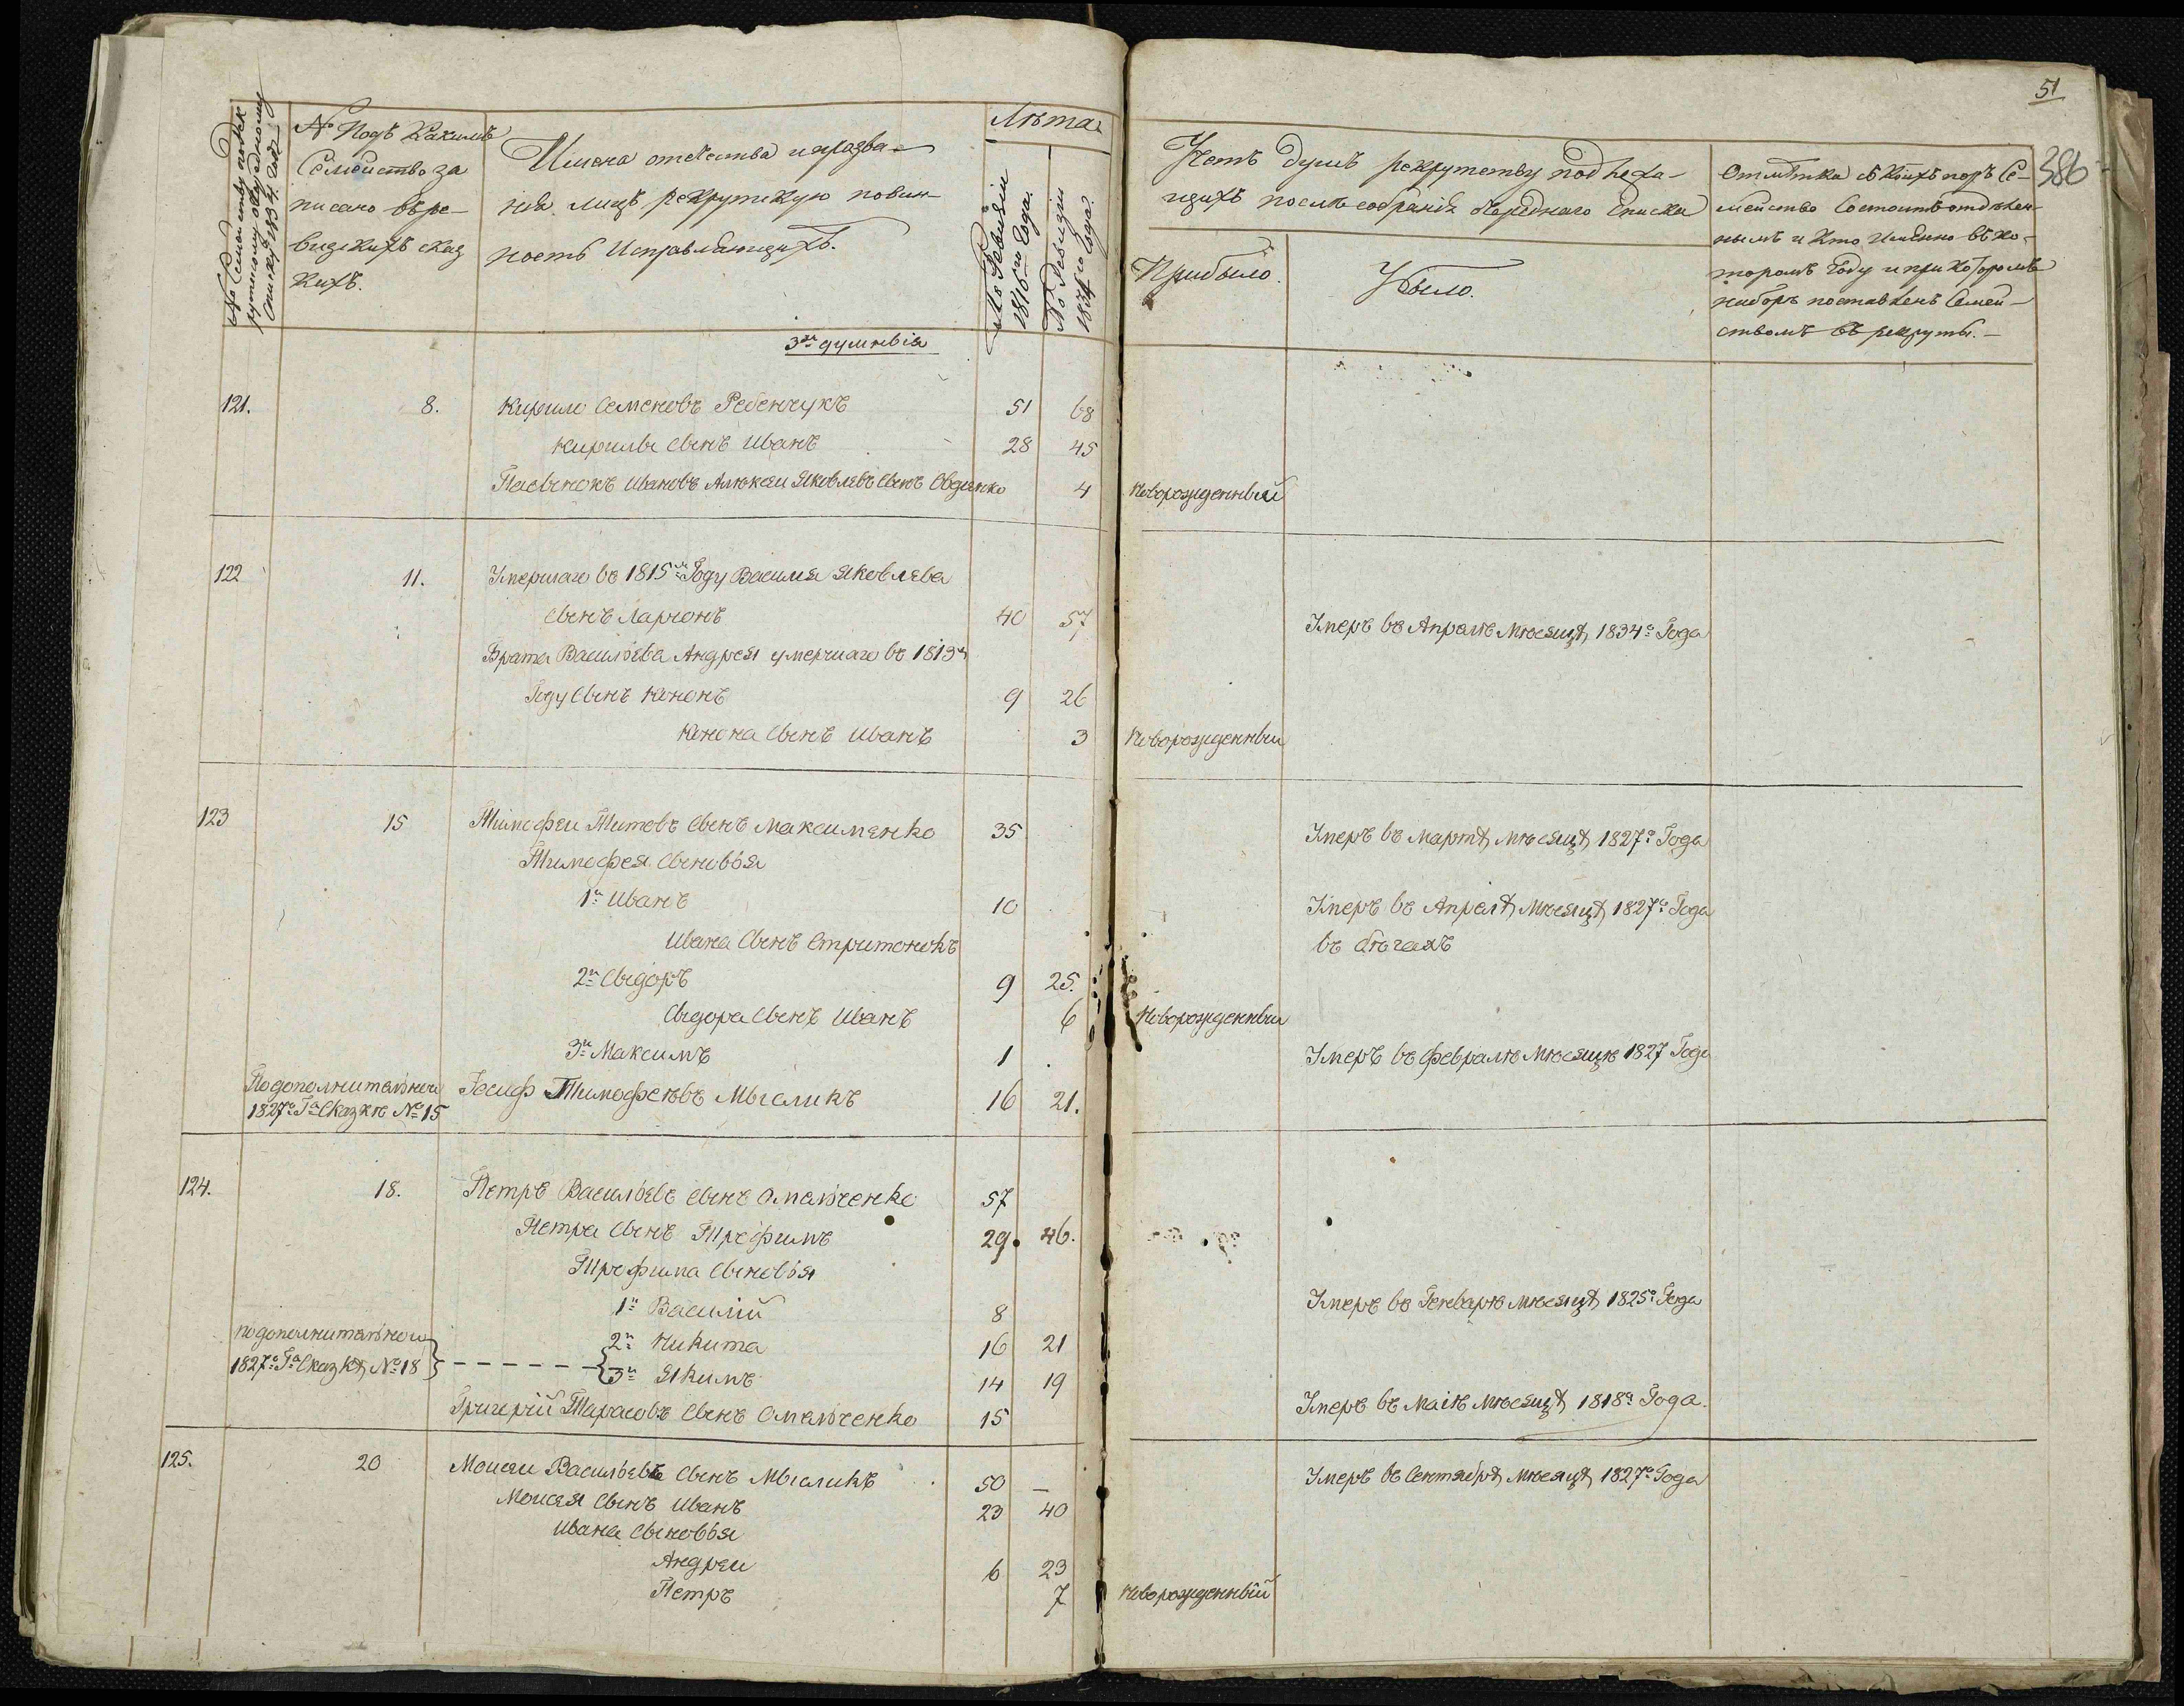 51
386
№ Семействъ по рек
рутскому очередному
списку 1834 года
№ Подъ Какимъ
Семейство за
писано въ ре-
визскихъ сказ
кахъ.
Имена отечества и прозва-
нія лицъ рекрутскую повин-
ность Исправляющихъ.
Лѣта
По Ревизіи
1816го Года.
По Ревизіи
1834го Года.
Учетъ душъ рекрутству подлежа-
щихъ послѣ собранія Очереднаго Списка
Прибыло.
Убыло.
Отмѣтка съ коихъ поръ Се-
мейство Состоитъ отдѣлен-
нымъ и Кто Именно въ ко-
торомъ Году и при Которомъ
наборѣ поставленъ Семей-
ствомъ въ рекруты.-
3хъ душнѣія
121. 8. Кирило Семеновъ Ребенчукъ 51 68
Кирилы Сынъ Иванъ 28 45
Пасынокъ Ивановъ Алексеи Яковлевъ Сынъ Овдѣнко 4 Новорожденный
122 11. Умершаго въ 1815м Году Василя Яковлева
Сынъ Ларионъ 40 57 Умеръ въ Апрелѣ Мѣсяцѣ 1834го Года
Брата Васильева Андрея умершаго въ 1813м
Году Сынъ Кононъ 9 26
Конона Сынъ Иванъ 3 Новорожденныи
123 15 Тимофеи Титовъ Сынъ Максименко 35 Умеръ въ Мартѣ Мѣсяцѣ 1827го Года
Тимофея Сыновья
1й Иванъ 10 Умеръ въ Апрелѣ Мѣсяцѣ 1827го Года
Ивана Сынъ Спритонокъ въ бѣгахъ
2й Сыдоръ 9 25.
Сыдора Сынъ Иванъ 6 Новорожденныи
3й Максимъ 1 Умеръ въ Февралѣ Мѣсяцѣ 1827 Года
По дополнительнои Іосиф Тимофеѣвъ Мысликъ 16 21.
1827го Га Сказкѣ № 15
124. 18. Петръ Васильевъ Сынъ Омельченко 57
Петра Сынъ Трофимъ 29. 46.
Трофима Сыновья
1й Василій 8 Умеръ въ Генварѣ Мѣсяцѣ 1825го Года
по дополнительнои 2й Никита 16 21
1827го Га Сказкѣ № 18 3й Якимъ 14 19
Григорій Тарасовъ Сынъ Омельченко 15 Умеръ въ Маіѣ Мѣсяцѣ 1818го Года.
125. 20 Моисеи Васильевъ Сынъ Мысликъ 50 - Умеръ въ Сентябрѣ Мѣсяцѣ 1827го Года
Моисея Сынъ Иванъ 23 40
Ивана Сыновья
Андреи 6 23
Петръ 7 Новорожденный